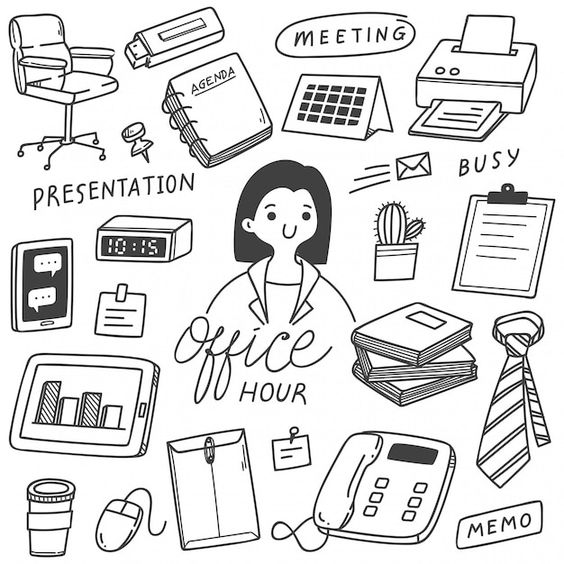 MEETING
AGENDA
BUSY
PRESENTATION
10:15
office
HOUR
MEMO